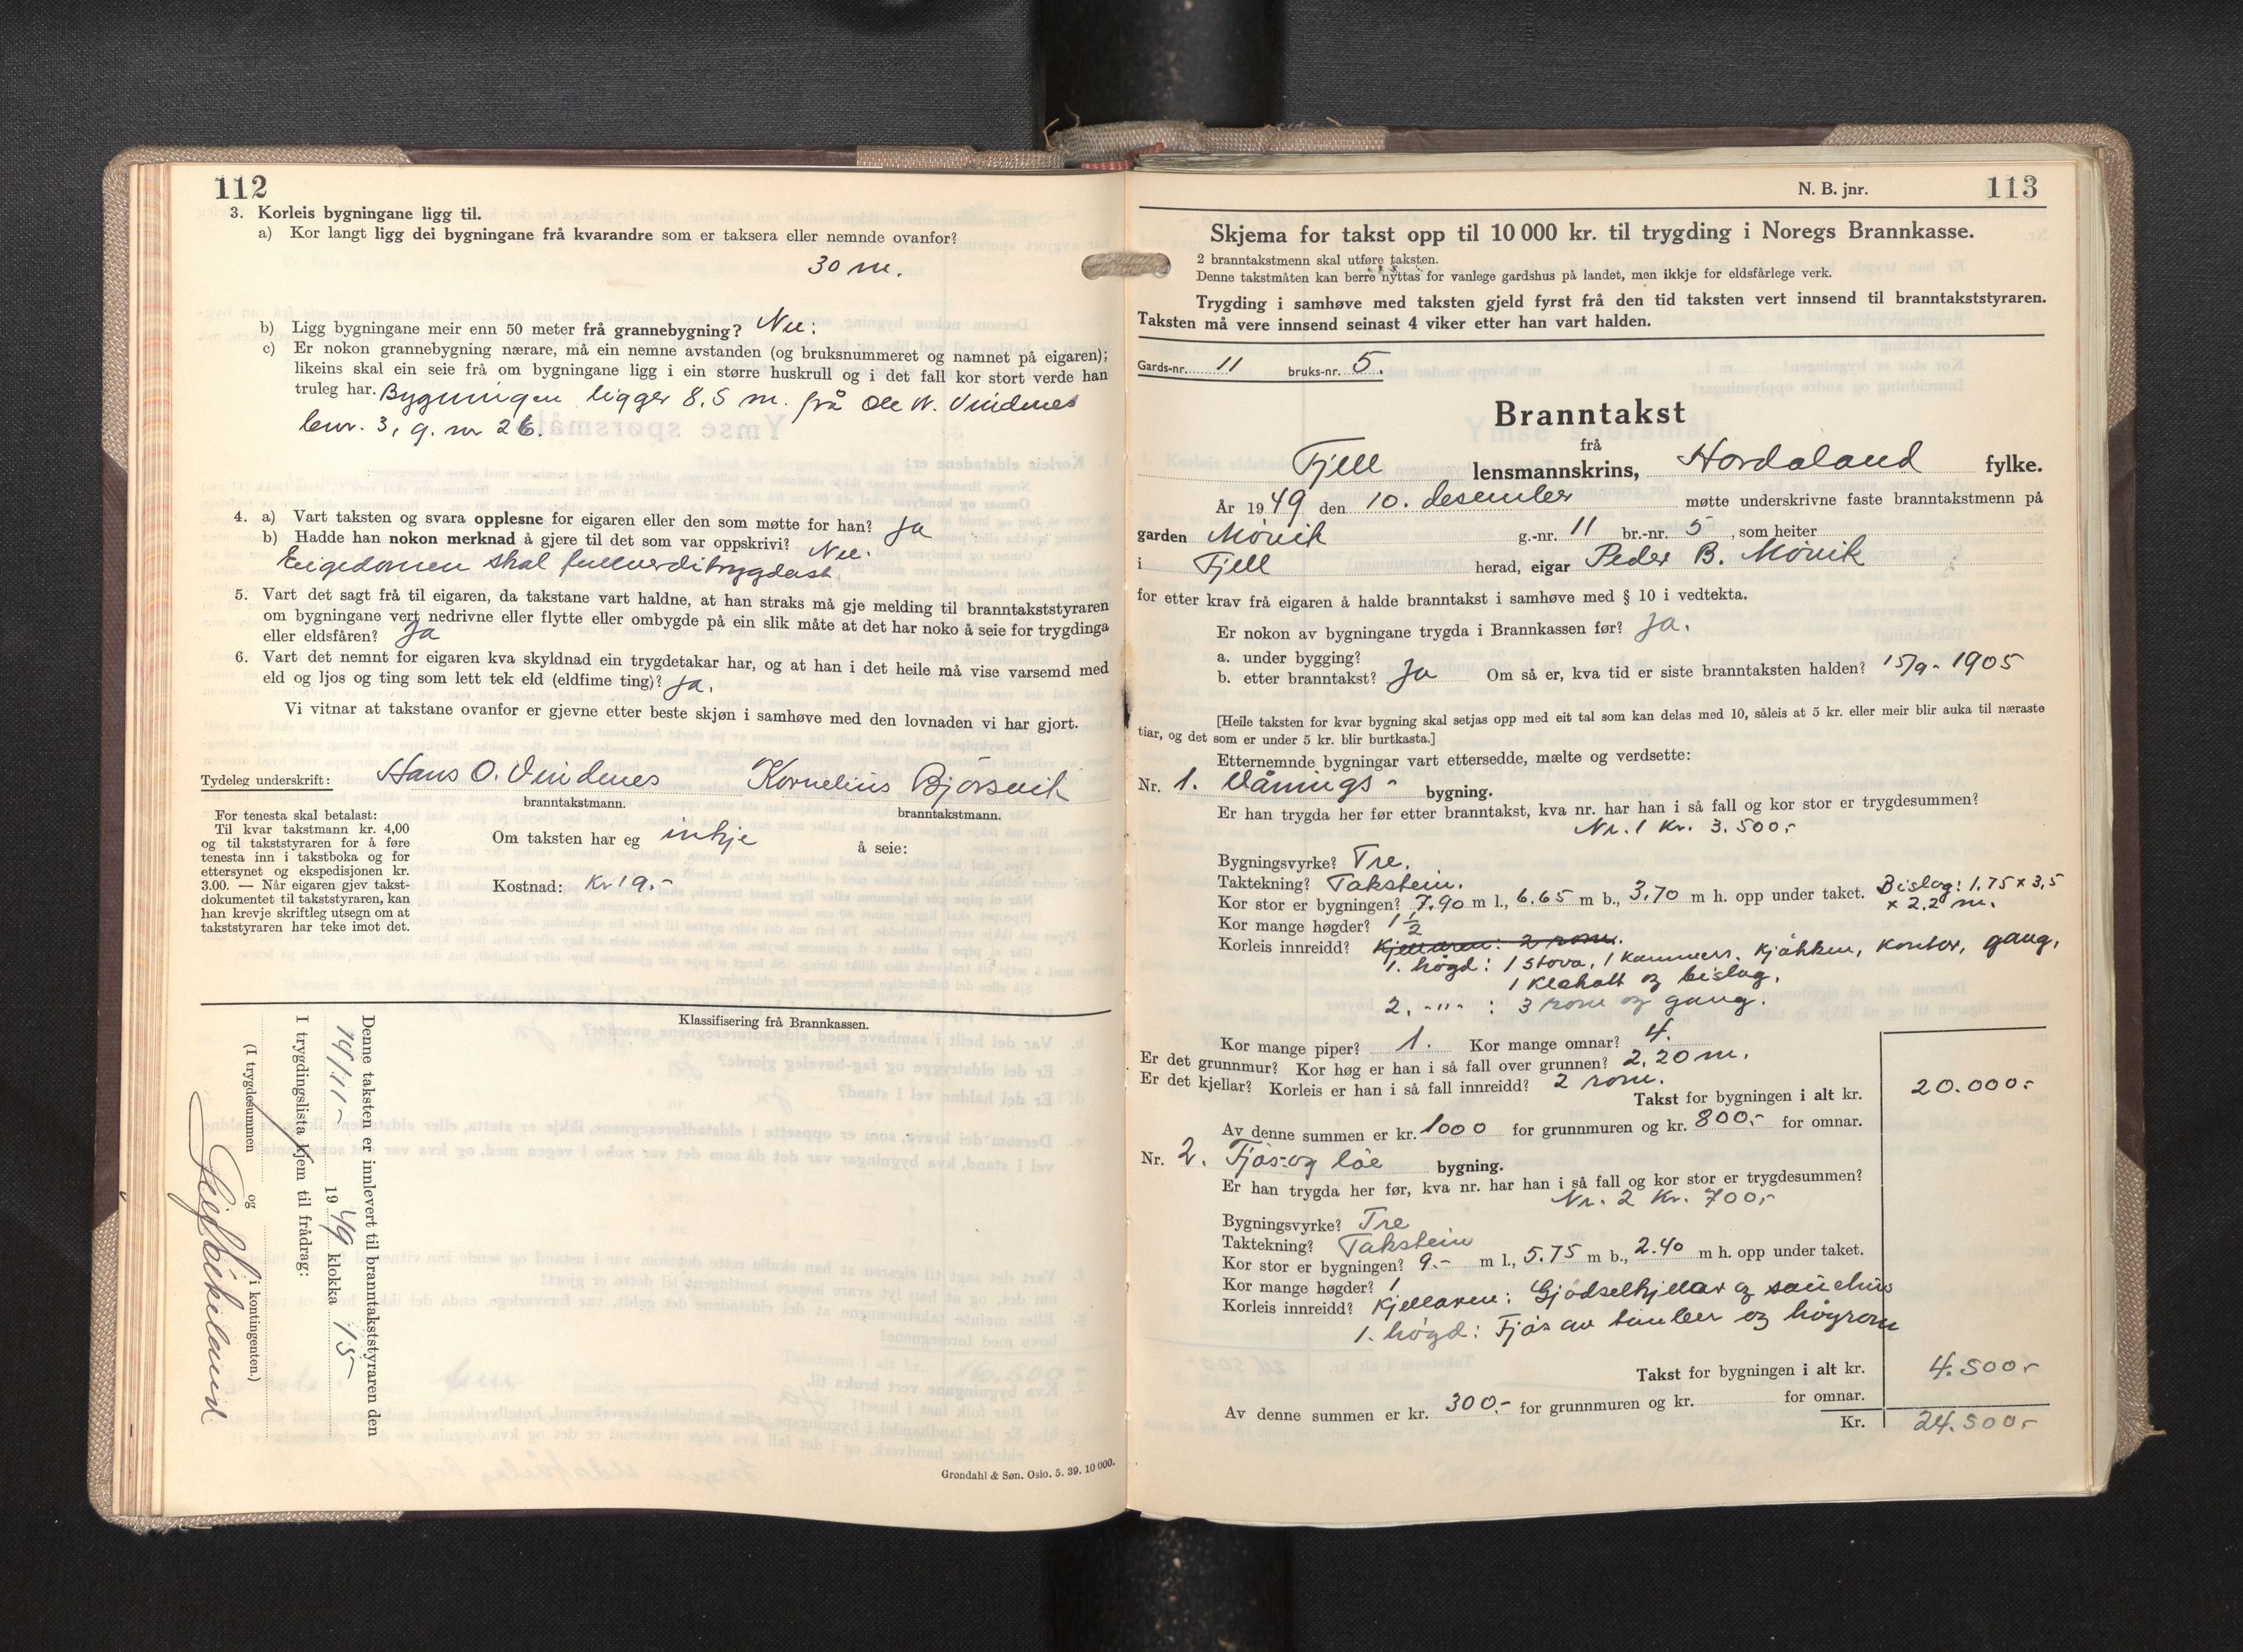 112
3. Korleis bygningane ligg til.
a) Kor langt ligg dei bygningane frå kvarandre som er taksera eller nemnde ovanfor?
30 m.
b) Ligg bygningane meir enn 50 meter frå grannebygning? Nei.
c) Er nokon grannebygning nærare, må ein nemne avstanden (og bruksnummeret og namnet på eigaren);
likeins skal ein seie frå om bygningane ligg i ein større huskrull og i det fall kor stort verde han
truleg har. Bygningen ligger 8,5 m. frå Ole N. Vindenes
bnr. 3, g. nr 26.
4. a) Vart taksten og svara opplesne for eigaren eller den som møtte for han? Ja
b) Hadde han nokon merknad å gjere til det som var oppskrivi? Nei.
Eigedomen skal fullverditrygdast
5. Vart det sagt frå til eigaren, da takstane vart haldne, at han straks må gje melding til branntakststyraren
om bygningane vert nedrivne eller flytte eller ombygde på ein slik måte at det har noko å seie for trygdinga
eller eldsfåren? Ja
6. Vart det nemnt for eigaren kva skyldnad ein trygdetakar har, og at han i det heile må vise varsemd med
eld og ljos og ting som lett tek eld (eldfime ting)? Ja.
Vi vitnar at takstane ovanfor er gjevne etter beste skjøn i samhøve med den lovnaden vi har gjort.
Tydeleg underskrift: Hans O. Vindenes Kornelius Bjørsvik
branntakstmann. branntakstmann.
For tenesta skal betalast:
Til kvar takstmann kr. 4,00
og til takststyraren for å føre
tenesta inn i takstboka og for
ettersynet og ekspedisjonen kr.
3.00. — Når eigaren gjev takst-
dokumentet til takststyraren, kan
han krevje skriftleg utsegn om at
takststyraren har teke imot det.
Om taksten har eg inkje å seie:
Kostnad: Kr 19.-
Klassifisering frå Brannkassen.
Denne taksten er innlevert til branntakststyraren den
14/11- 1949 klokka 15
I trygdingslista kjem til frådrag:
(I trygdesummen og i kontingenten.)
Grøndahl & Søn, Oslo. 5. 39. 10 000.
N. B. jnr. 113
Skjema for takst opp til 10 000 kr. til trygding i Noregs Brannkasse.
2 branntakstmenn skal utføre taksten.
Denne takstmåten kan berre nyttas for vanlege gardshus på landet, men ikkje for eldsfårlege verk.
Trygding i samhøve med taksten gjeld fyrst frå den tid taksten vert innsend til branntakststyraren.
Taksten må vere innsend seinast 4 viker etter han vart halden.
Gards-nr. 11 bruks-nr. 5.
Branntakst
frå
Fjell lensmannskrins, Hordaland fylke.
År 1949 den 10. desember møtte underskrivne faste branntakstmenn på
garden Møvik g.-nr. 11 br.-nr. 5, som heiter
i Fjell herad, eigar Peder B. Møvik
for etter krav frå eigaren å halde branntakst i samhøve med § 10 i vedtekta.
Er nokon av bygningane trygda i Brannkassen før? Ja.
a. under bygging?
b. etter branntakst? Ja Om så er, kva tid er siste branntaksten halden? 15/9- 1905
[Heile taksten for kvar bygning skal setjas opp med eit tal som kan delas med 10, såleis at 5 kr. eller meir blir auka til næraste
tiar, og det som er under 5 kr. blir burtkasta.]
Etternemnde bygningar vart ettersedde, mælte og verdsette:
Nr. 1. Vånings- bygning.
Er han trygda her før etter branntakst, kva nr. har han i så fall og kor stor er trygdesummen?
Nr. 1 Kr. 3.500,-
Bygningsvyrke? Tre.
Taktekning? Takstein.
Kor stor er bygningen? 7.90 m l., 6.65 m b., 3,70 m h. opp under taket. Bislag: 1,75 x 3,5
x 2,2 m.
Kor mange høgder? 1 1/2
Korleis innreidd? Kjellaren: 2 rom.
1. høgd: 1 stova, 1 kammers, kjøkken, kontor, gang,
1 klekott og bislag.
2. -"- : 3 rom og gang.
Kor mange piper? 1. Kor mange omnar? 4.
Er det grunnmur? Kor høg er han i så fall over grunnen? 2,20 m.
Er det kjellar? Korleis er han i så fall innreidd? 2 rom.
Takst for bygningen i alt kr. 20.000,-
Av denne summen er kr. 1000 for grunnmuren og kr. 800,- for omnar.
Nr. 2. Fjøs- og løe bygning.
Er han trygda her før, kva nr. har han i så fall og kor stor er trygdesummen?
Nr. 2 Kr. 700,-
Bygningsvyrke? Tre
Taktekning? Takstein
Kor stor er bygningen? 9.- m l., 5.75 m b., 2.40 m h. opp under taket.
Kor mange høgder? 1
Korleis innreidd? Kjellaren: Gjødselkjellar og sauehus
1. høgd: Fjøs av timber og høyrom
Takst for bygningen i alt kr. 4.500,-
Av denne summen er kr. 300.- for grunnmuren og kr. for omnar.
Kr. 24.500,-